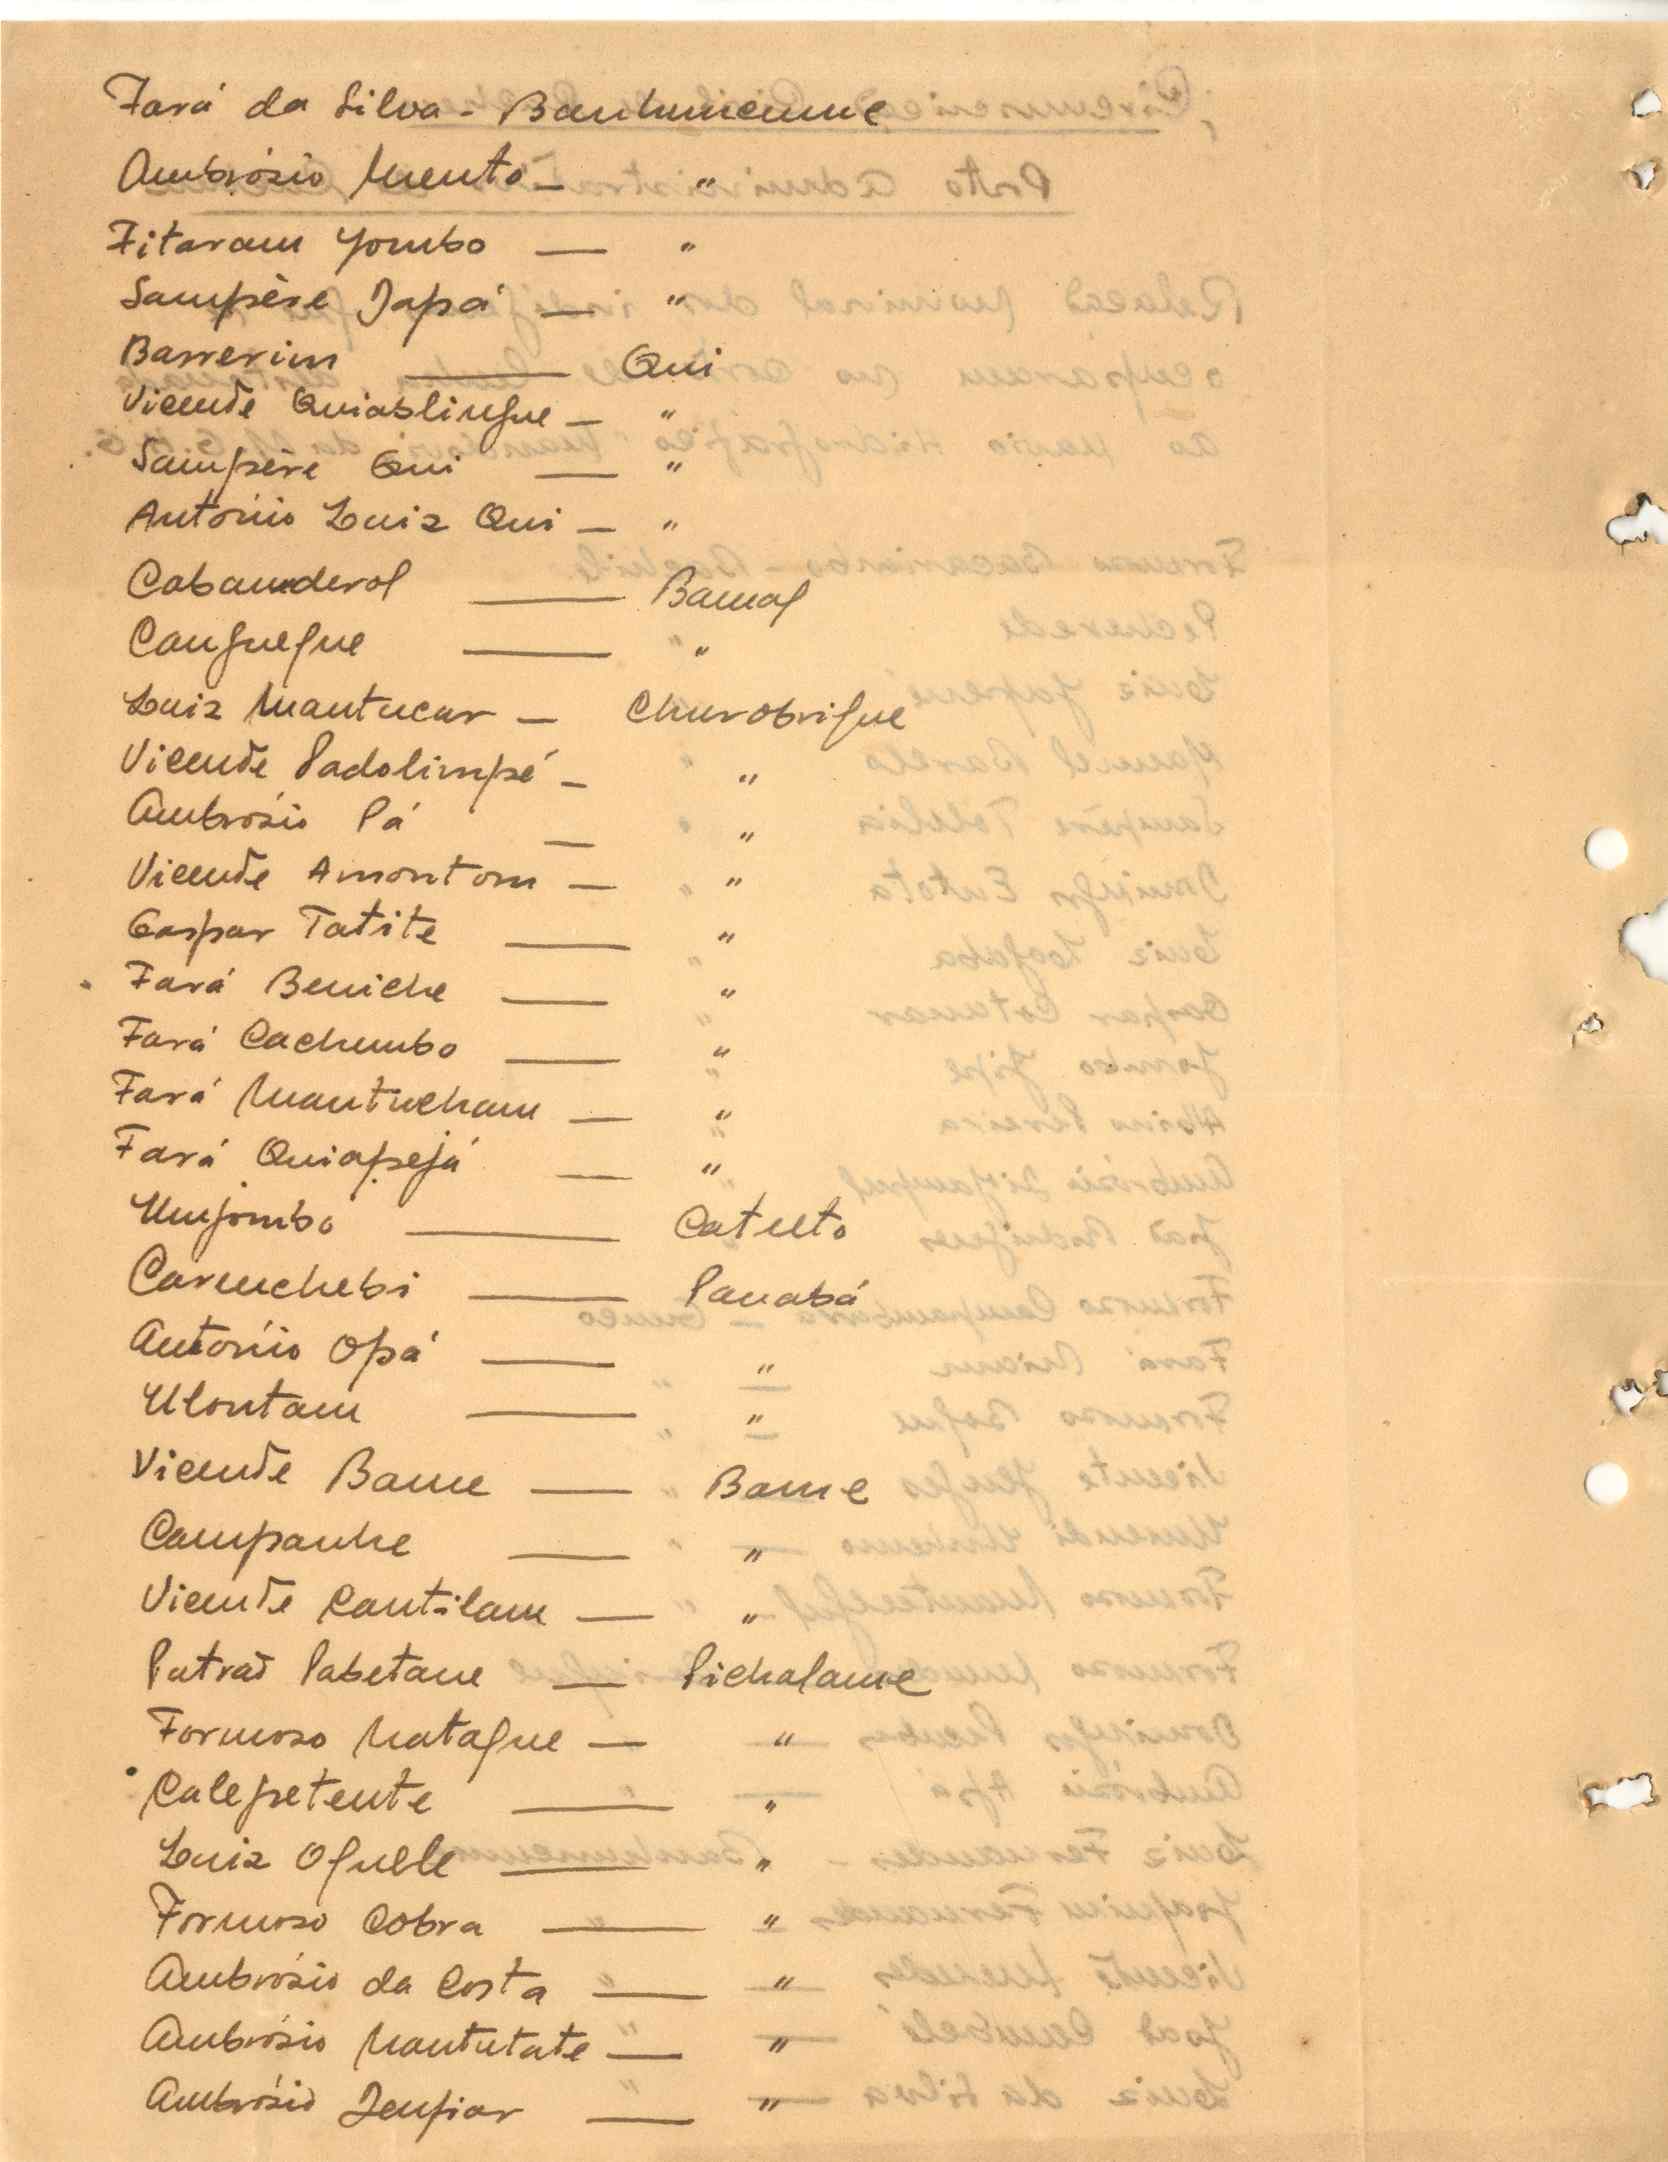 Fará da Silva - Banhumenume
Ambrósio Mento - "
Fitaram Yombo — "
Sampère Japá — "
Barrerim — Qui
Vicente Quiablingue — "
Sampère Qui — "
António Luiz Qui — "
Cabamderol — Bamol
Canguegue — "
Luiz Mantucar — Churobrigue
Vicente Padolimpé — "
Ambrósio Pá — "
Vicente Amontom — "
Gaspar Tatite — "
Fará Beniche — "
Fará Cachumbo — "
Fará Mantucham — "
Fará Quiapejá — "
Umjombo — Catulto
Caruchebi — Panabá
António Opá — "
Ulontam — "
Vicente Bame — Bame
Campanhe — "
Vicente Cantilam — "
Patrão Pabetane — Pichalame
Formoso Natague — "
Calepetente — "
Luiz Oguele — "
Formoso Cobra — "
Ambrósio da Costa — "
Ambrósio Nantutate — "
Ambrósio Jenpiar — "